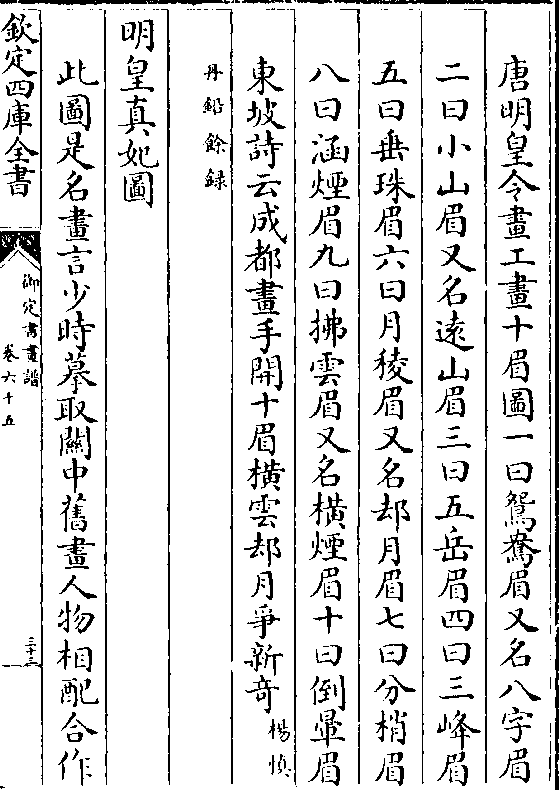 唐明皇令畫工畫十眉圖一曰鴛鴦眉又名八字眉
二曰小山眉又名遠山眉三曰五岳眉四曰三峰眉
五曰垂珠眉六曰月稜眉又名却月眉七曰分梢眉
八曰涵煙眉九曰拂雲眉又名橫煙眉十曰倒暈眉
東坡詩云成都畫手開十眉橫雲却月爭新奇楊慎
丹鉛餘録
明皇真妃圖
此圖是名畫言少時摹取關中舊畫人物相配合作
欽定四庫全書
御定書畫譜
卷六十五
三十三